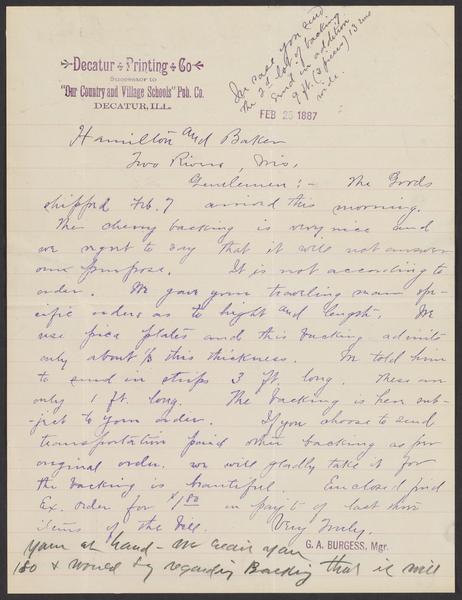 Decatur Printing Co
Successor to
"Our Country and Village Schools" Pub. Co.
DECATUR, ILL.
In case you send
the 2d lot of backing
send in addition
9 ft. (3 pieces) 13
wide.
FEB 25 1887
Hamilton and Baker
Two Rivers, Wis.
Gentlemen: - The Goods
shipped Feb. 7 arrived this morning.
The cherry backing is very nice and
we regret to say that it will not answer
our purpose. It is not according to
order. We gave your traveling man spe-
cific orders as to hight and length. We
use pica plates and this backing admits
only about ⅓ this thickness. We told him
to send in strips 3 ft. long. These are
only 1 ft. long. The backing is here sub-
ject to your order. If you choose to send
transportation paid other backing as per
original order, we will gladly take it for
the backing is beautiful. Enclosed find
Ex. order for $1.80 in pay't of last
items of the bill.
Very Truly,
G. A. BURGESS, Mgr.
Yours at hand - We
180 & would say regarding Backing that it will